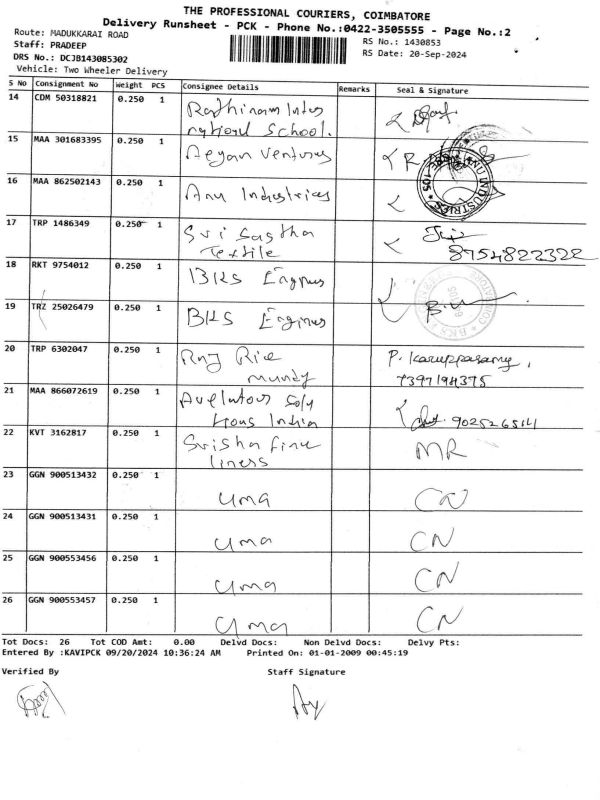 THE PROFESSIONAL COURIERS, COIMBATORE
Delivery Runsheet - PCK - Phone No.:0422-3505555 - Page No.:2
Route: MADUKKARAI ROAD
RS No.: 1430853
Staff: PRADEEP
RS Date: 20-Sep-2024
DRS No.: DCJB143085302
Vehicle: Two Wheeler Delivery
S No Consignment No Weight PCS Consignee Details Remarks Seal & Signature
14 CDM 50318821 0.250 1 Rathinam Inter
national School.
15 MAA 301683395 0.250 1 Ventures
16 MAA 862502143 0.250 1 Anu Industries
ANU INDUSTRIES
17 TRP 1486349 0.250 1 Sri Sastha
Textile
8754822322
18 RKT 9754012 0.250 1 BKS Engines
19 TRZ 25026479 0.250 1 BKS Engines
20 TRP 6302047 1 Raj Rice P. Karuppasamy,
mundy 7397194375
21 MAA 866072619 0.250 1
India
22 KVT 3162817 0.250 1 Srisha fine MR
liners
23 GGN 900513432 0.250 1 uma CN
24 GGN 900513431 0.250 1 uma CN
25 GGN 900553456 0.250 1 uma CN
26 GGN 900553457 0.250 1 uma CN
Tot Docs: 26 Tot COD Amt: 0.00 Delvd Docs: Non Delvd Docs: Delvy Pts:
Entered By :KAVIPCK 09/20/2024 10:36:24 AM Printed On: 01-01-2009 00:45:19
Verified By Staff Signature